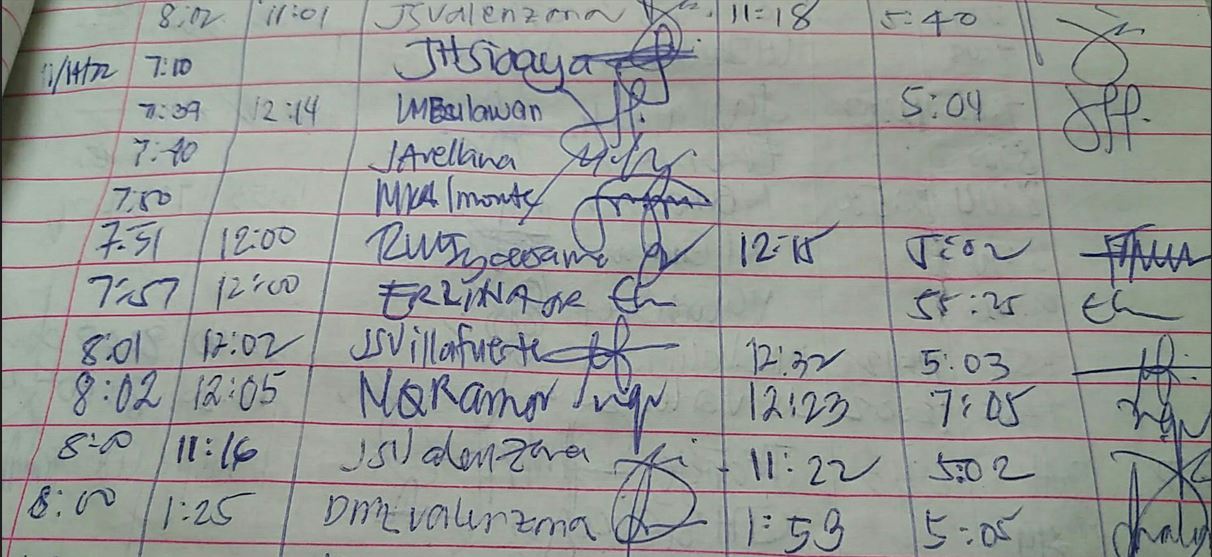 8:02 11:01 JSValenzona 11:18 5:40
7:10 JHSidaya
7:39 12:14 LMBulawan 5:04
7:40 JArellana
7:50 MKAlmonte
7:51 12:00 12:15 5:02
7:57 12:00 ERZINAOR 55:25
8:01 12:02 JSVillafuerte 12:32 5:03
8:02 12:05 NQRamor 12:23 7:05
8:00 11:16 JSValenzona 11:22 5:02
8:00 1:25 DMEValenzona 1:53 5:05